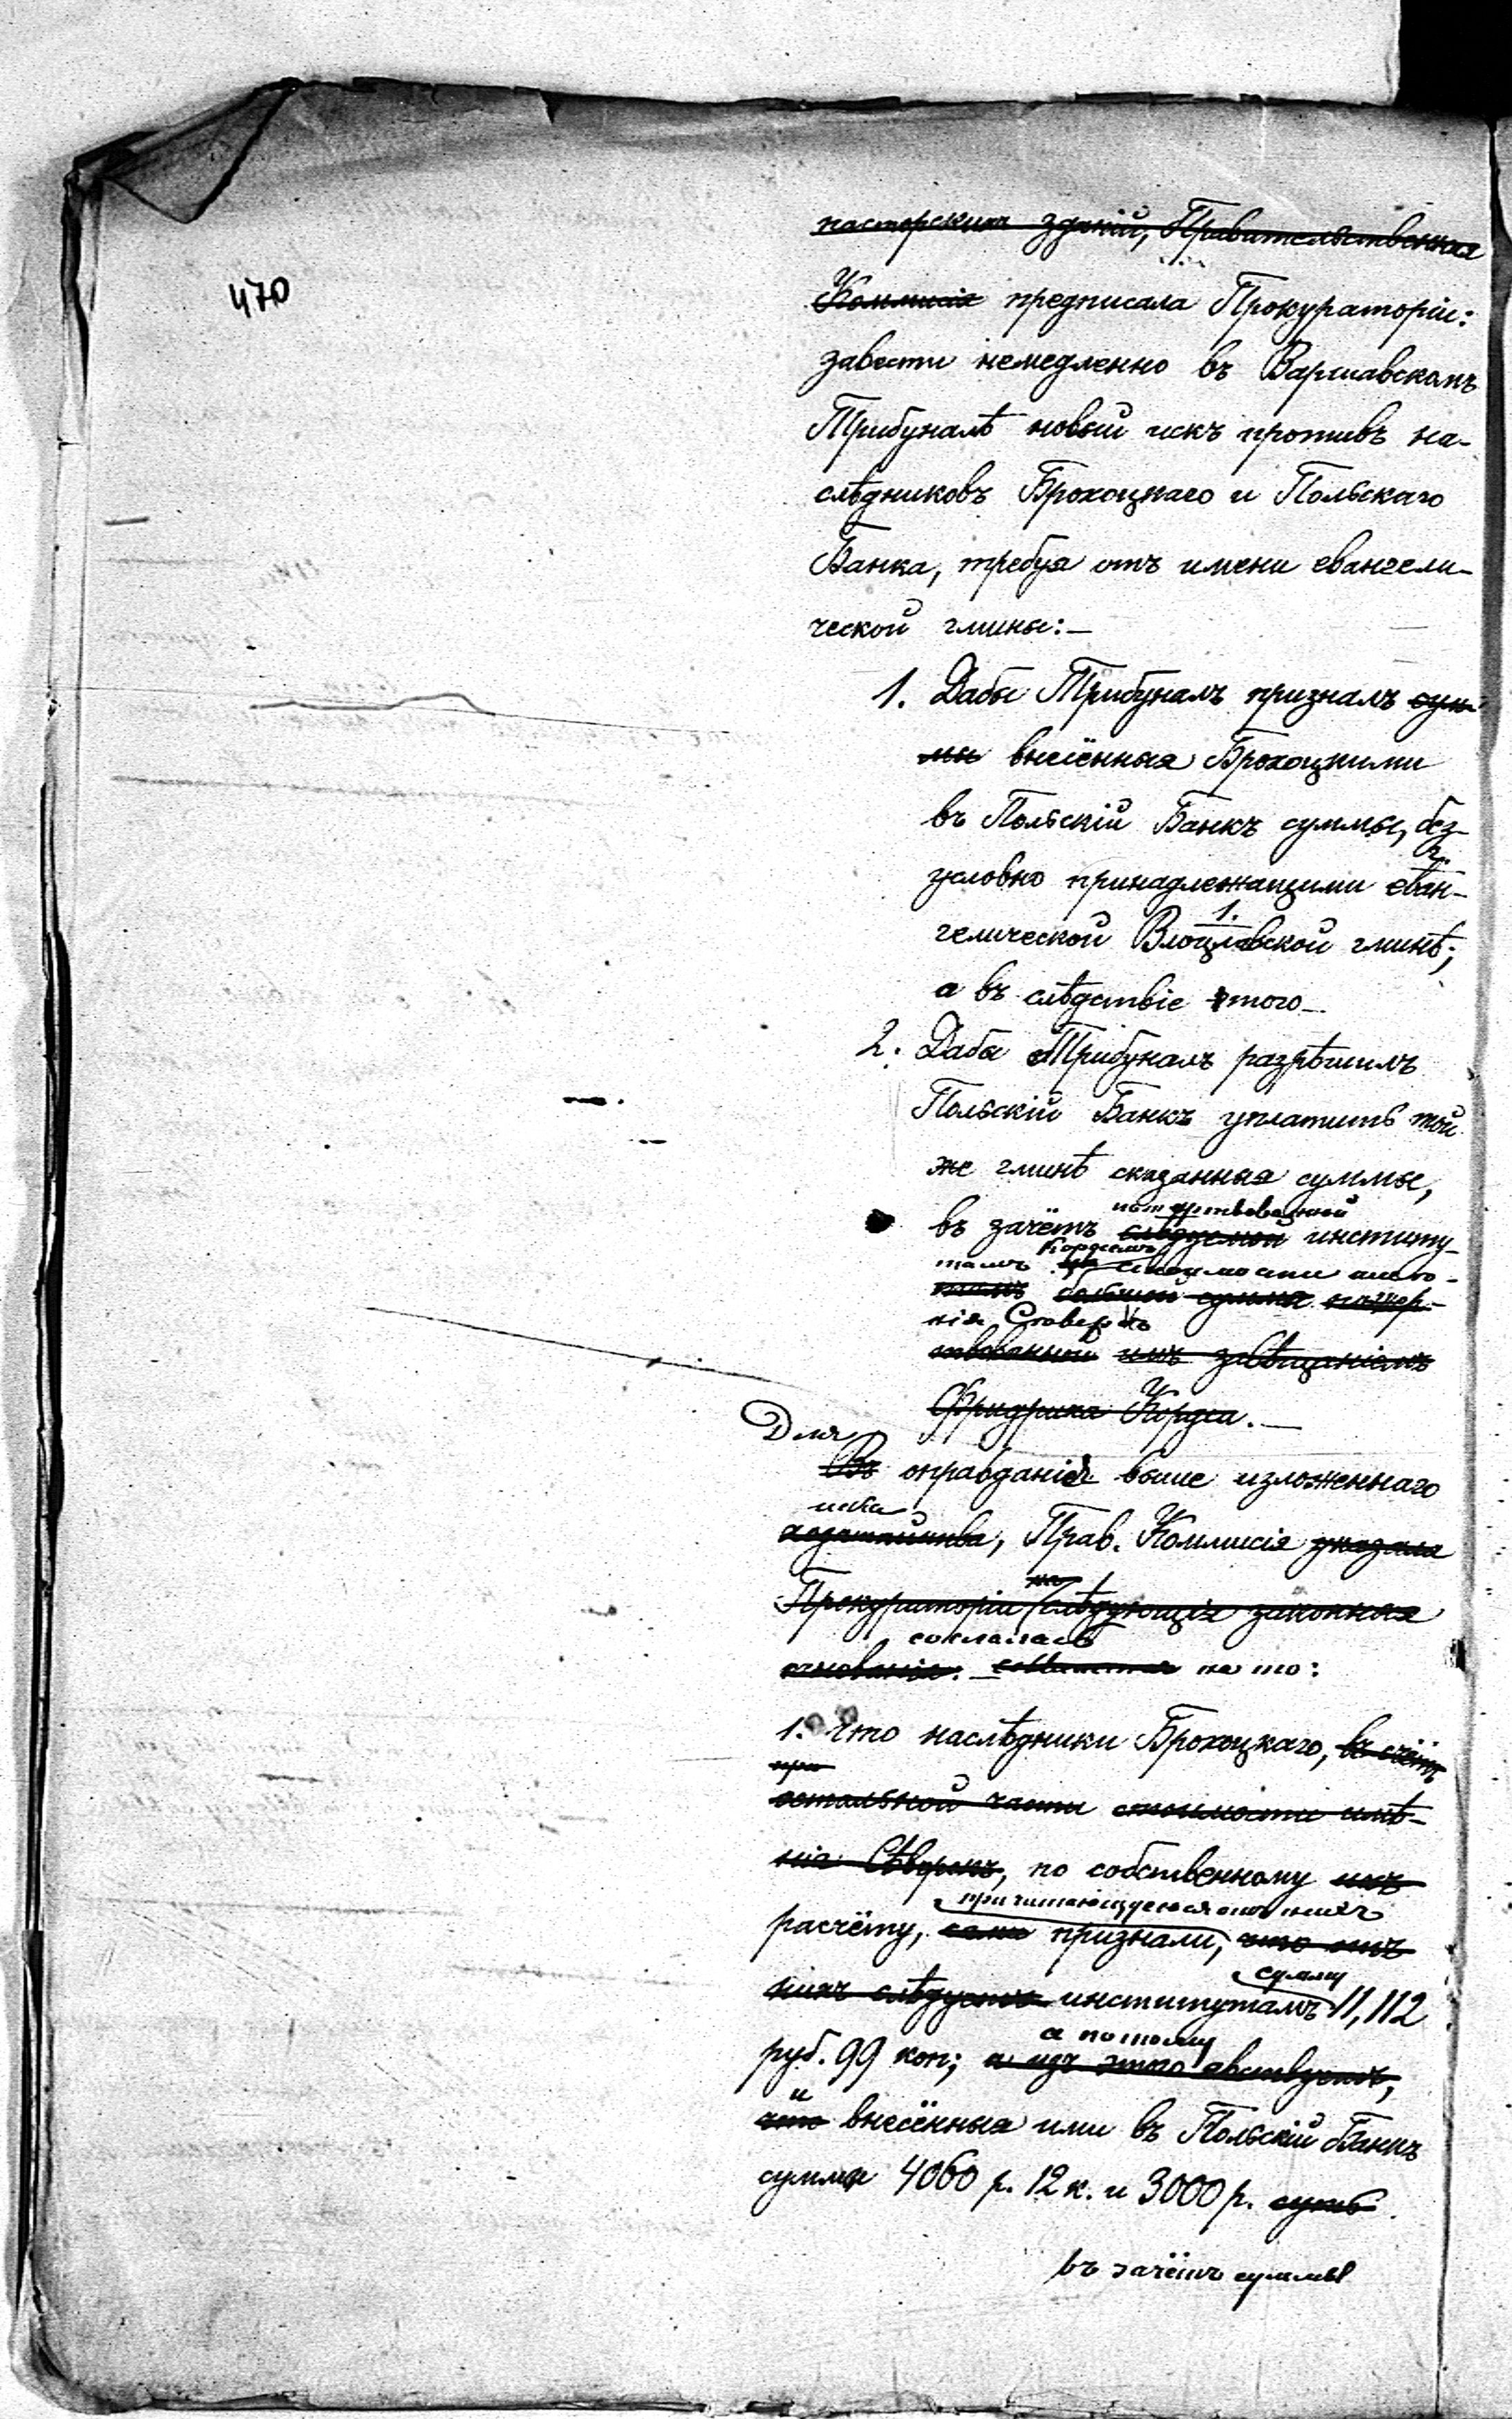 470
пасторскихъ зданій, Правительственная
Коммисія предписала Прокураторіи:
завести немедленно въ Варшавскомъ
Трибуналѣ новый искъ противъ на-
слѣдниковъ Брохоцкаго и Польскаго
Банка, требуя отъ имени евангели-
ческой гмины:—
1. Дабы Трибуналъ призналъ сум-
мы внесённыя Брохоцкими
въ Польскій Банкъ суммы, без-
2.
условно принадлежащими еван-
1.
гелической Влоцлавской гминѣ;
а въ слѣдствіе этого—
2. Дабы Трибуналъ разрѣшилъ
Польскій Банкъ уплатить той
же гминѣ сказанныя суммы,
пожертвованной
въ зачётъ слѣдуемой институ-
Кордсомъ
тамъ стоимости имѣ-
большой суммы пожер-
нія Сѣверскъ
твованной имъ завѣщаніемъ
Фридриха Кордса.—
Для
Въ оправданія выше изложеннаго
иска
ходатайства, Прав. Коммисія указала
на
Прокураторіи слѣдующія законныя
сослалась
основанія: на то:
1. Что наслѣдники Брохоцкаго, въ счётъ
при
остальной части стоимости имѣ-
нія Сѣверскъ, по собственному ихъ
причитающуюся отъ нихъ
расчёту, сами признали, что отъ
сумму
нихъ слѣдуетъ институтамъ 11,112
а потому
руб. 99 коп; а изъ этого явствуетъ,
и
что внесённыя ими въ Польскій Банкъ
суммы 4060 р. 12 к. и 3000 р. суть
въ зачётъ суммы